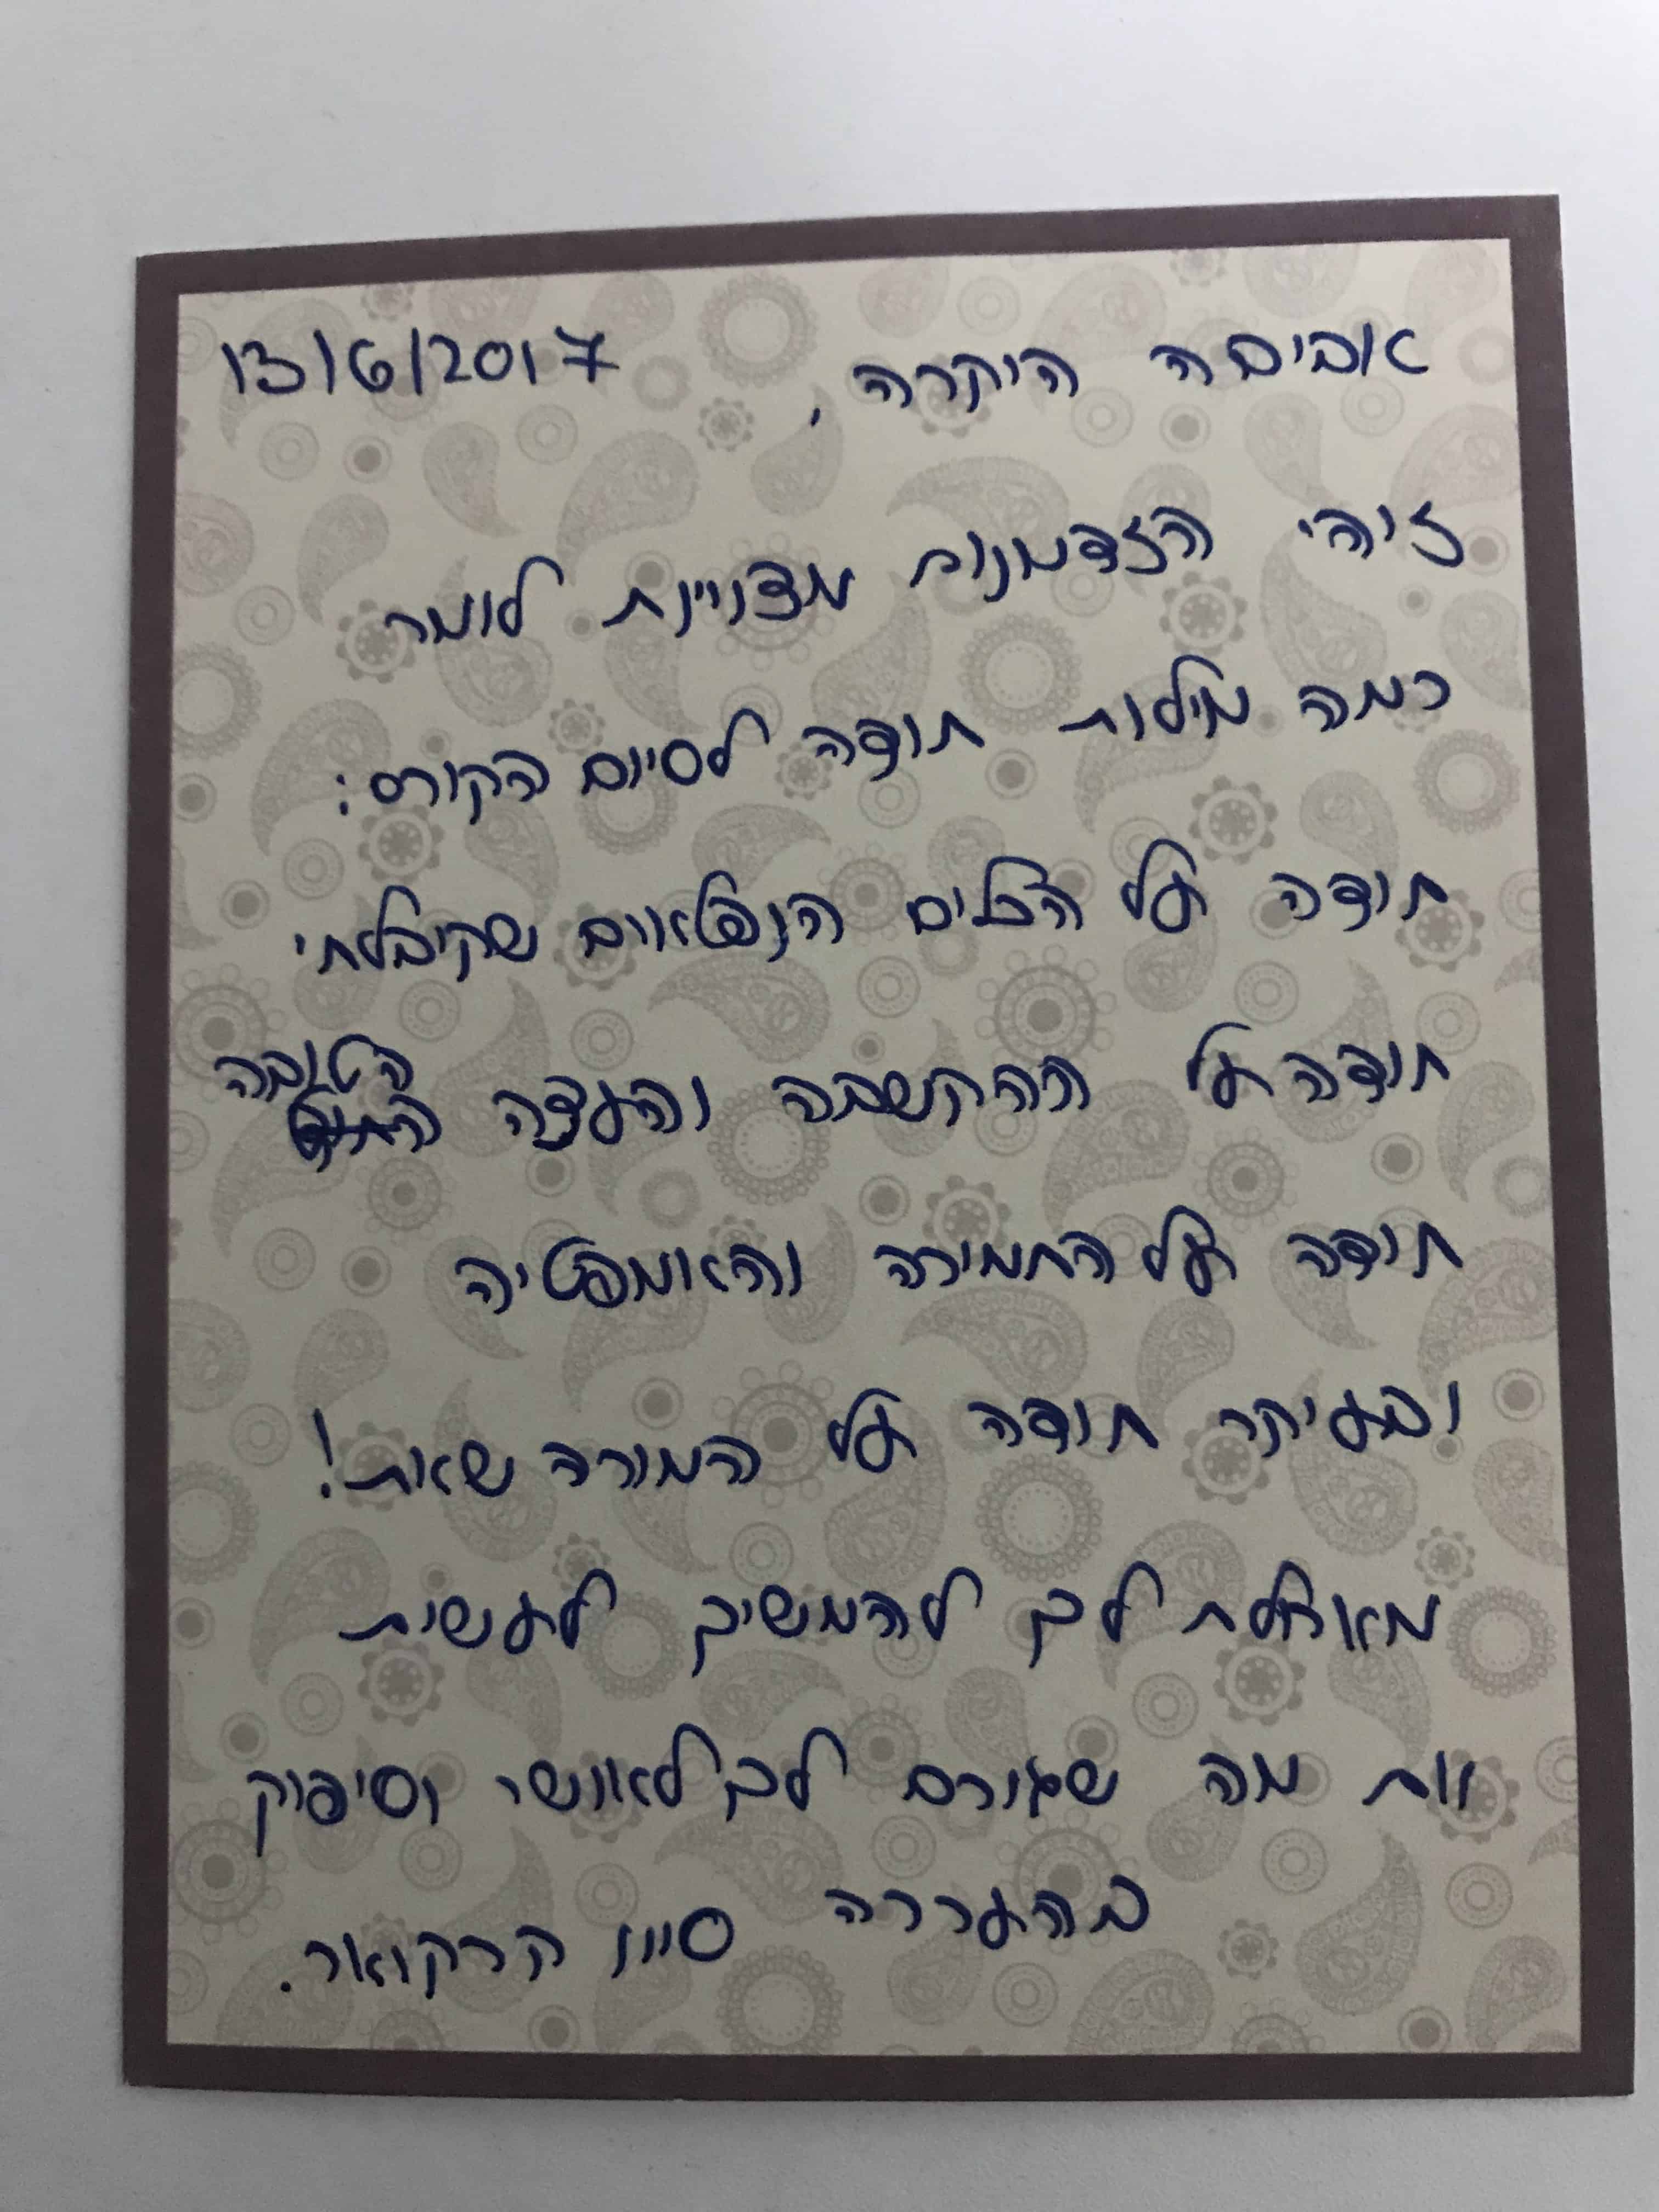 אביבה היקרה, 13/6/2017
זוהי הזדמנות מצויינת לומר
כמה מילות תודה לסיום הקורס:
תודה על הכלים הנפלאים שקיבלתי
תודה על ההקשבה והעצה הטובה
תודה על התמיכה והאומפטיה
ובעיקר תודה על המורה שאת!
מאחלת לך להמשיך לעשות
את מה שגורם לך לאושר וסיפוק
בהערכה סיון